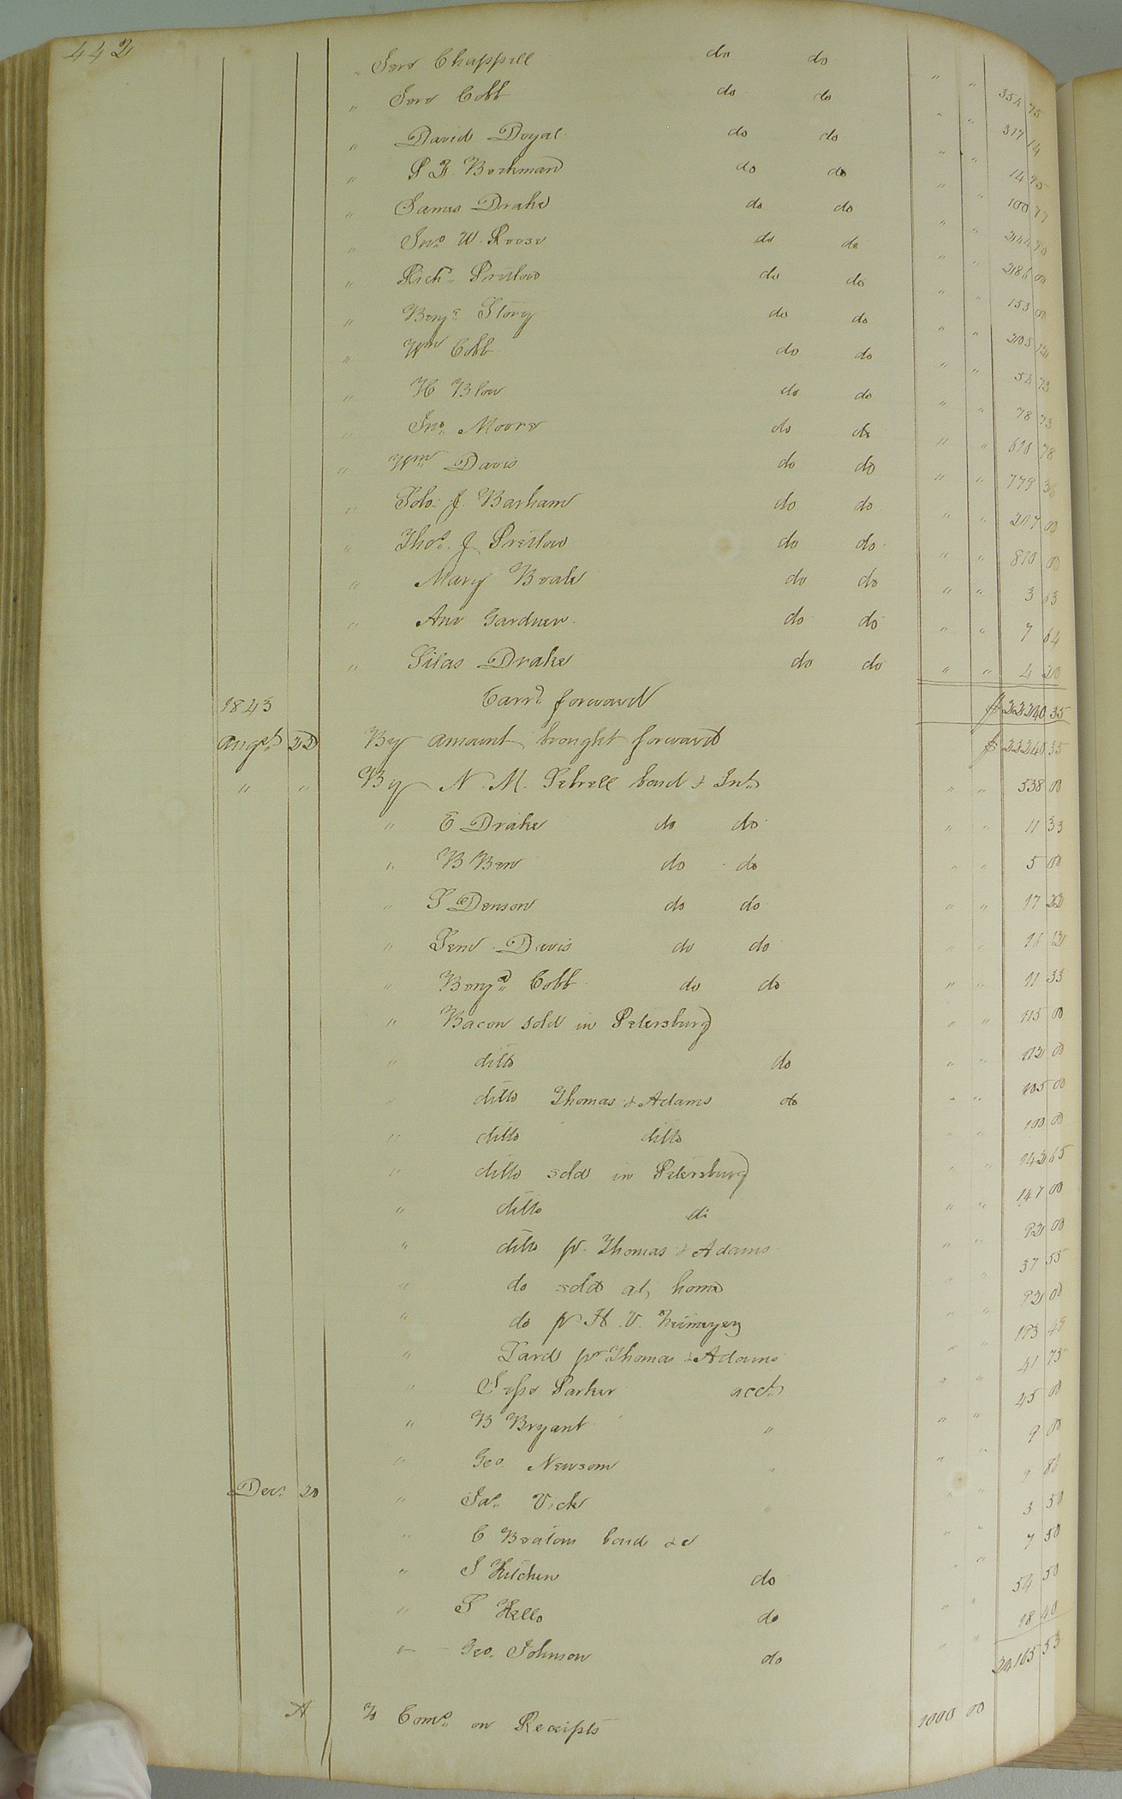 442
" Chappell do do " " 354 75
" Cobb do do " " 317 14
" David Doyal do do " " 14 95
" do do " " 100 77
" James Drake do do " " 244 90
" Jno. W. do do " " 00
" Richd. Pretlow do do " " 153 00
" Benja. Story do do " " 205
" Wm Cobb do do " " 54 73
" H Blow do do " " 78 73
" Jno. Moore do do " " 78
" Wm. Davis do do " " 779
" Solo. J. Barham do do " " 207 00
" Thos. J. Pretlow do do " " 810 00
" Mary Beale do do " " 3 63
" Ann Gardner do do " " 7 64
" Silas Drake do do " " 4 20
1843 Carrd. forward $ 22240 35
Augst. 22 By amount brought forward $ 22240 35
" " By N. M. Sebrell bond & Int. " " 538 00
" E Drake do do " " 11 33
" B do do " " 5 00
" S Denson do do " " 17 22
" Davis do do 12
" Benja. Cobb do do " " 11 33
" Bacon sold in Petersburg " " 115 00
" ditto do " " 112 00
" ditto Thomas & Adams do " " 105 00
" ditto ditto " " 100 00
" ditto sold in Petersburg " " 142 65
" ditto do " " 147 00
" ditto pr. Thomas & Adams " " 92 00
" do sold at home " " 37 55
" do pr H. V. Neimeyer " " 92 00
" Lard pr Thomas & Adams " " 193 49
" Jesse Parker acct. " " 41 75
" B Bryant " " " 45 00
" Geo. Newsom " " " 9 00
Decr. 20 " Jas. Vick " " " 86
" C bond &c " " 3 50
" S Kitchen do " " 7 50
" S do " " 54 50
" Geo. Johnson do " " 18 40
24,165 53
A To Comns. on Receipts 1000 00